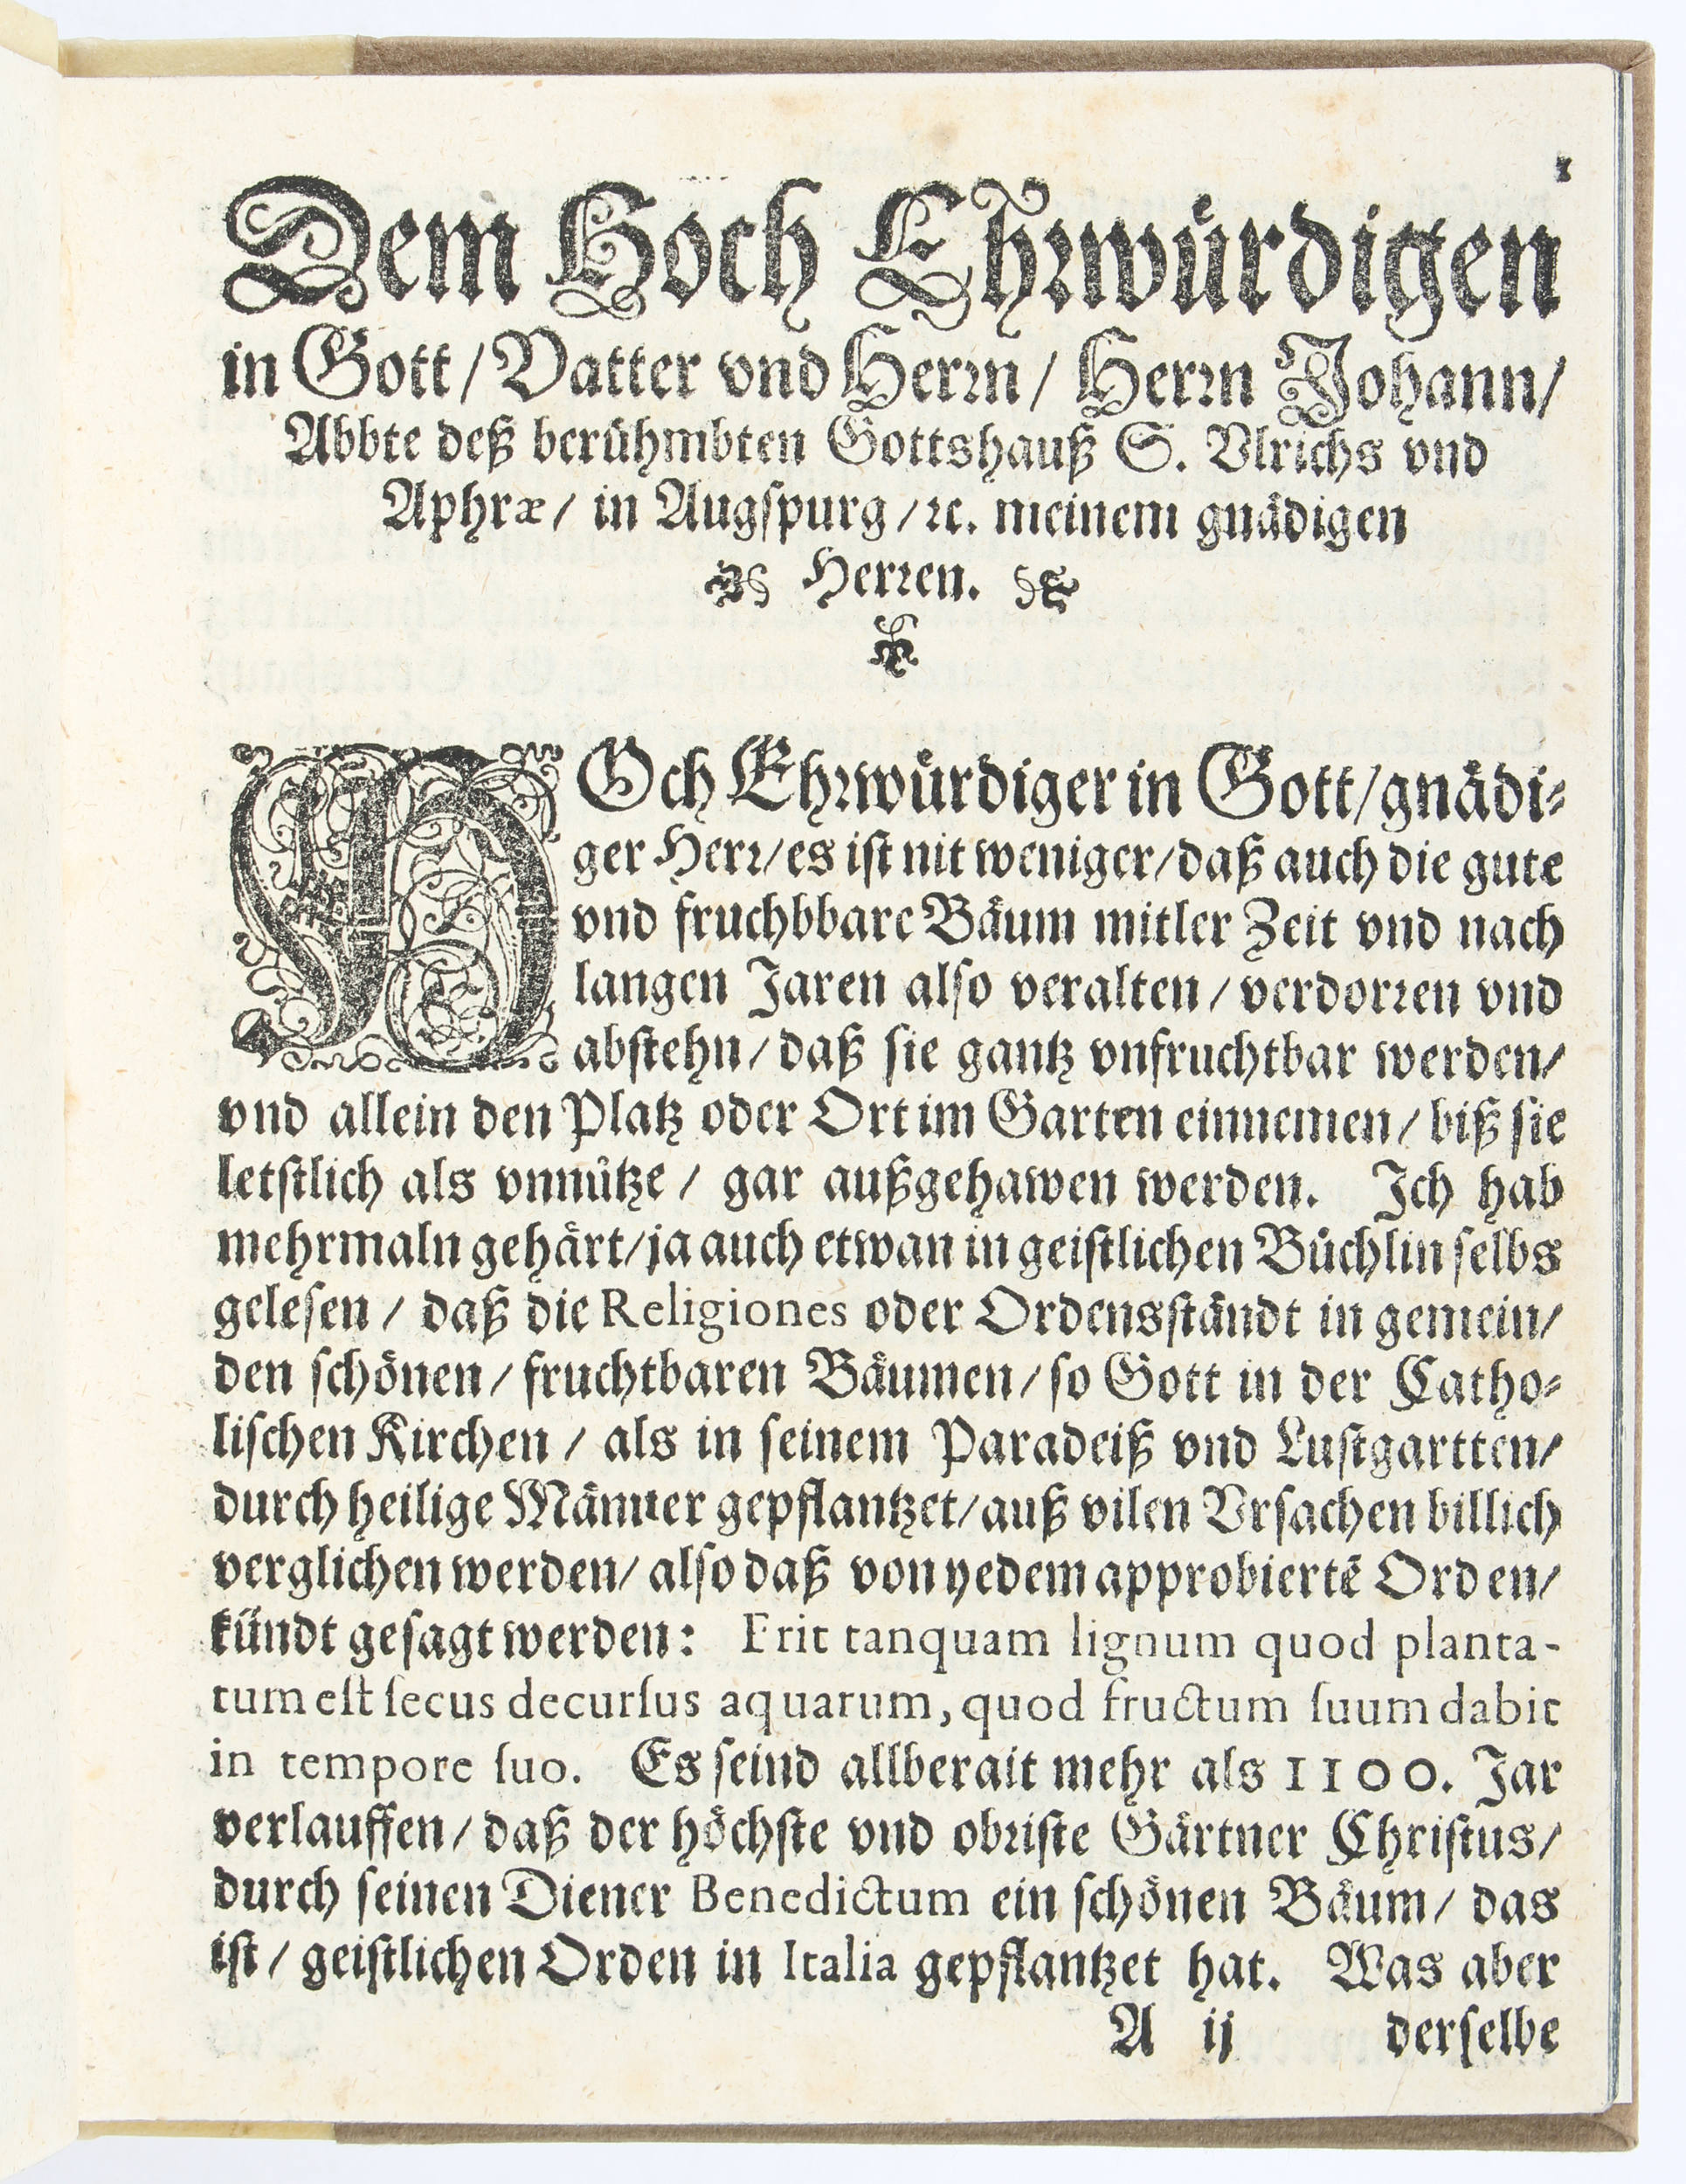 1
Dem Hoch Ehrwürdigen
in Gott/ Vatter vnd Herrn/ Herrn Johann/
Abbte deß berühmbten Gottshauß S. Vlrichs vnd
Aphræ/ in Augſpurg/ ꝛc. meinem gnädigen
Herren.
HOch Ehrwürdiger in Gott/ gnädi⸗
ger Herr/ es iſt nit weniger/ daß auch die gute
vnd fruchbbare Bäum mitler Zeit vnd nach
langen Jaren alſo veralten/ verdorren vnd
abſtehn/ daß ſie gantz vnfruchtbar werden/
vnd allein den Platz oder Ort im Garten einnemen/ biß ſie
letſtlich als vnnütze/ gar außgehawen werden. Ich hab
mehrmaln gehärt/ ja auch etwan in geiſtlichen Büchlin ſelbs
geleſen/ daß die Religiones oder Ordensſtändt in gemein/
den ſchönen/ fruchtbaren Bäumen/ ſo Gott in der Catho⸗
liſchen Kirchen/ als in ſeinem Paradeiß vnd Luſtgartten/
durch heilige Männer gepflantzet/ auß vilen Vrſachen billich
verglichen werden/ alſo daß von yedem approbiertẽ Orden/
kündt geſagt werden: Erit tanquam lignum quod planta-
tum eſt ſecus decurſus aquarum, quod fructum ſuum dabit
in tempore ſuo. Es ſeind allberait mehr als 1100. Jar
verlauffen/ daß der höchſte vnd obriſte Gärtner Chriſtus/
durch ſeinen Diener Benedictum ein ſchönen Bäum/ das
iſt/ geiſtlichen Orden in Italia gepflantzet hat. Was aber
A ij derſelbe